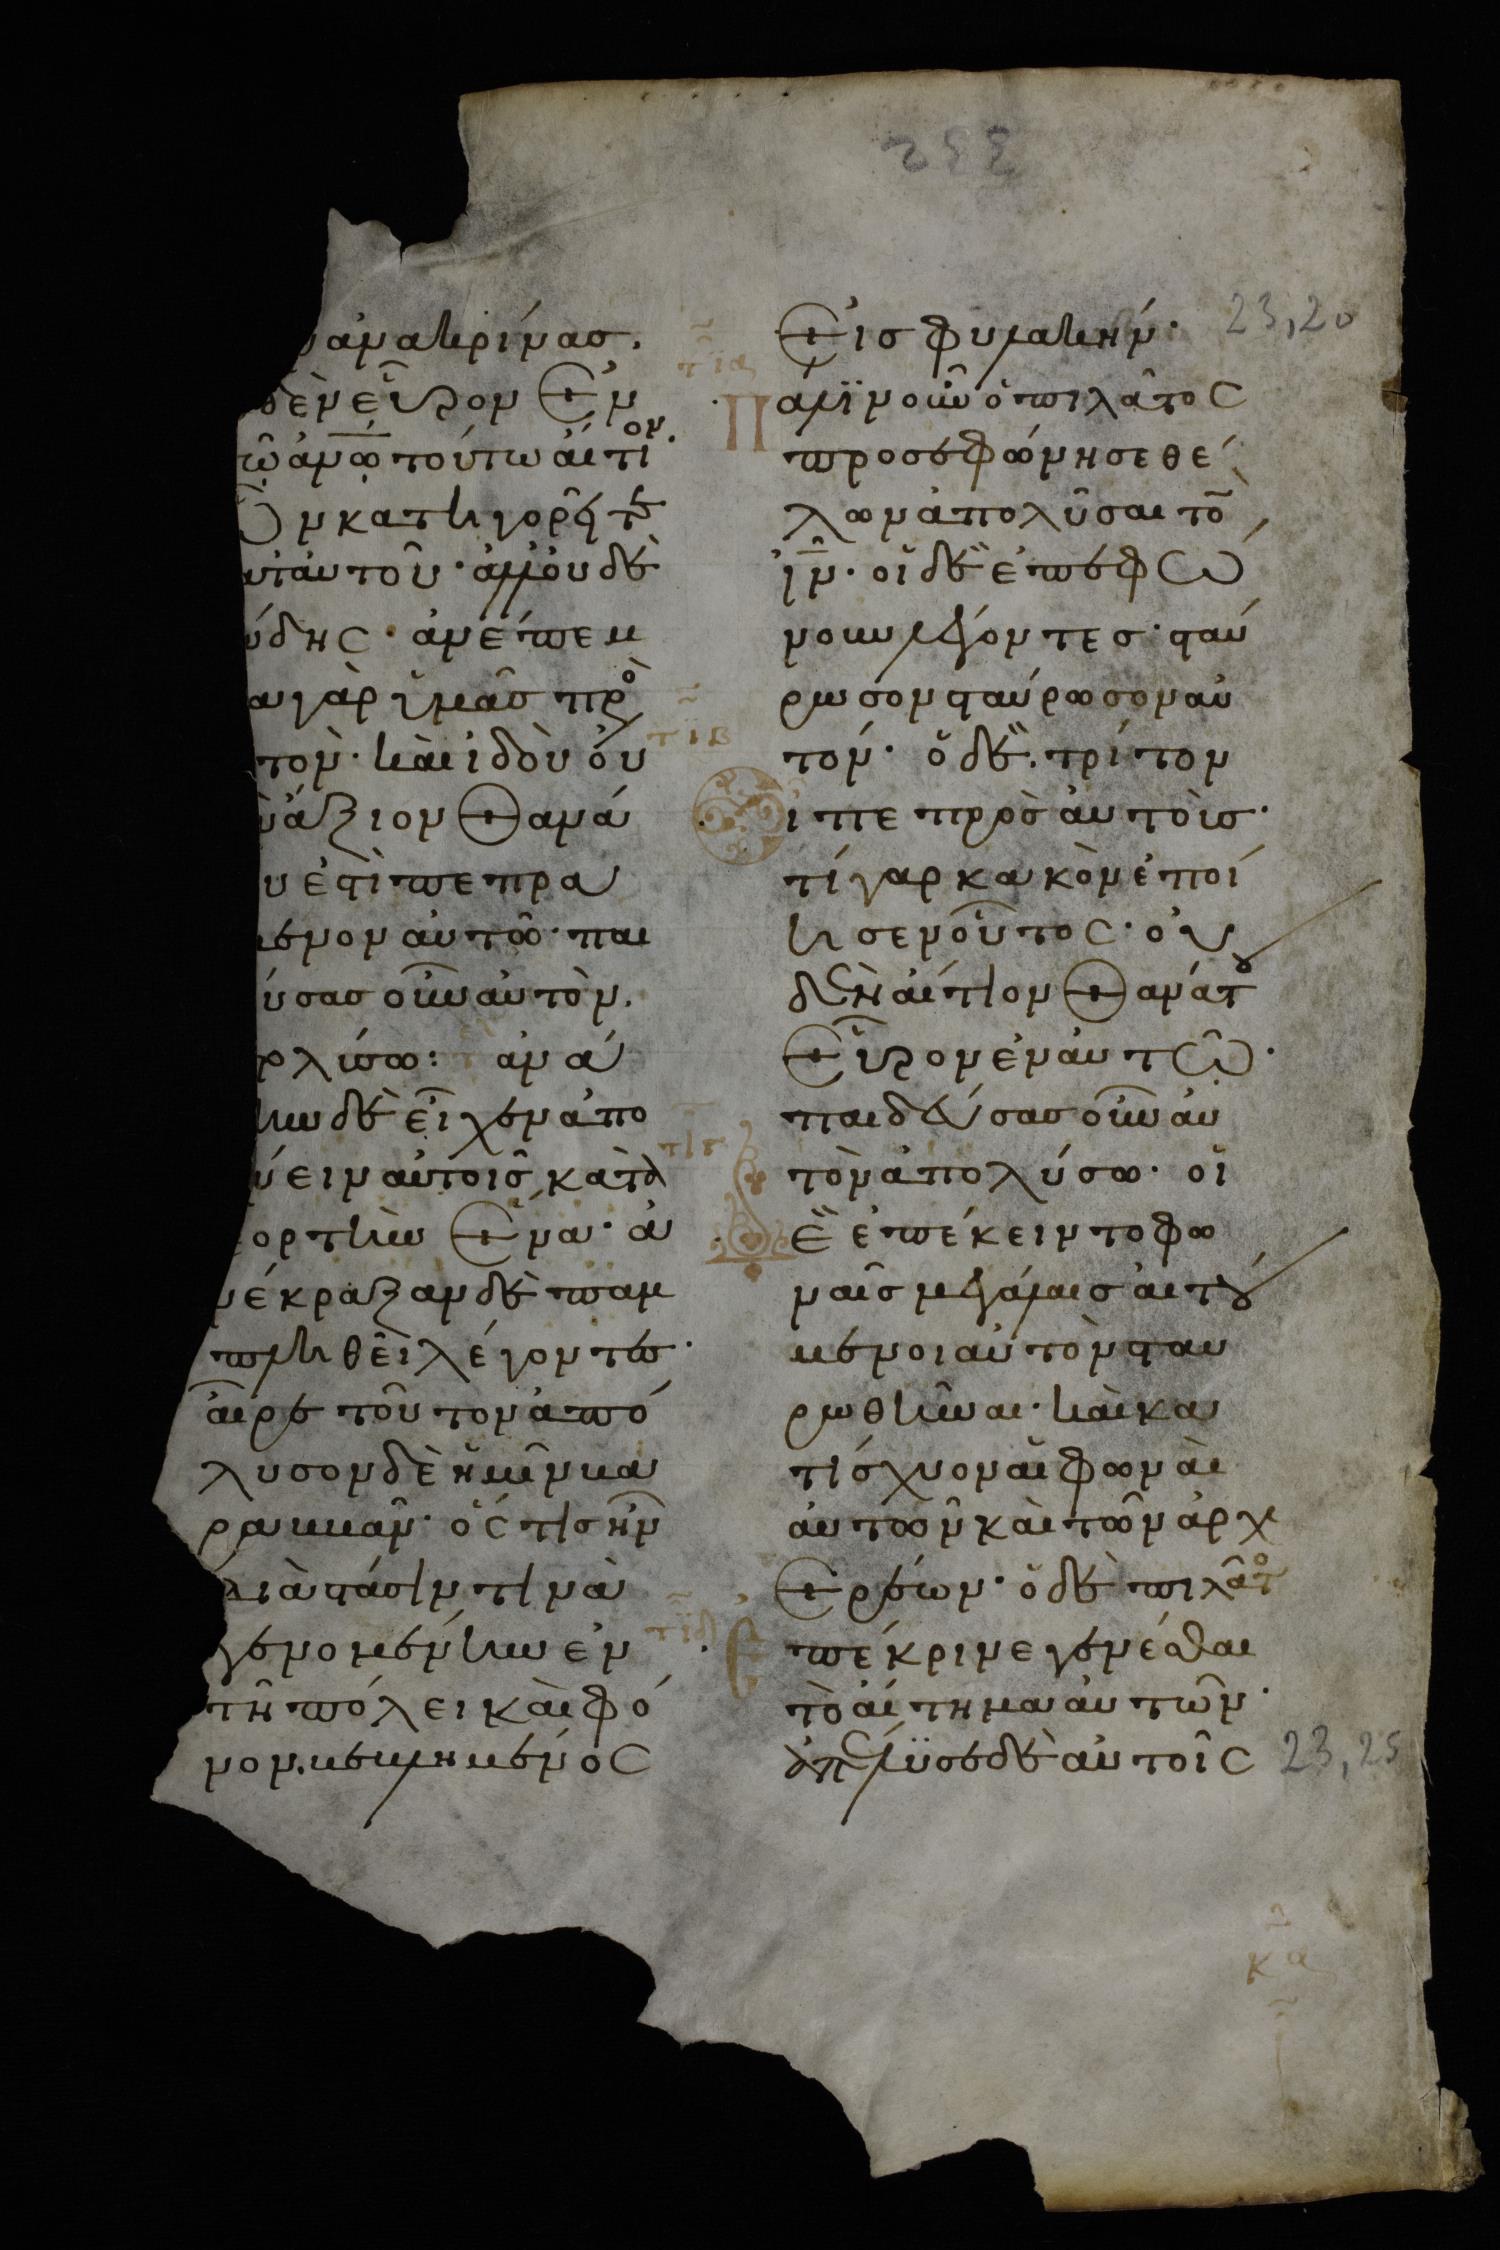 ἀνακρίνας.
δὲν εὗρον ἐν
τῶ ἀνω τούτω αἴτιον.
ὧν κατηγορεῖτε
κατ αὐτοῦ· ἀλλ οὐδὲ
ώδης· ἀνέπεμ
α γὰρ ὑμᾶς πρὸ
τὸν· καὶ ἰδοὺ οὐ
ν ἄξιον θανά
υ ἐστὶ πεπρα
μένον αὐτῶ· παι
ύσας οὖν αὐτὸν.
ολύσω: ἀνά
κην δὲ εἶχεν ἀπο
ύειν αὐτοῖς κατὰ
ἑορτὴν ἕνα· ἀ
νέκραξαν δὲ παμ
πληθεὶ λέγοντες·
αἶρε τοῦτον ἀπό
λυσον δὲ ἡμῖν βα
ραββᾶν· ὅς τις ἦν
διὰ στάσιν τινὰ
γενομένην ἐν
τῆ πόλει καὶ φό
νον. βεβλημένος
εἰς φυλακήν·
τια
Πάλιν οὖν ὁ πιλᾶτος
προσεφώνησε θέ
λων ἀπολῦσαι τὸ
ιν· οἱ δὲ ἐπεφώ
νουν λέγοντες· σταύ
ρωσον σταύρωσον αὐ
τόν· ὁ δὲ τρίτον
τιβ
εἶπε πρὸς αὐτοὺς·
τί γαρ κακὸν ἐποί
ησεν οὗτος· οὐ
δὲν αἴτιον θανάτου
εὗρον ἐν αὐτῶ·
παιδεύσας οὖν αὐ
τὸν ἀπολύσω· οἱ
τιγ
δὲ ἐπέκειντο φω
ναῖς μεγάλαις αἰτού
μενοι αὐτὸν σταυ
ρωθῆναι· καὶ κα
τίσχυον αἱ φωναὶ
αὐτῶν καὶ τῶν ἀρχι
ερέων· ὁ δὲ πιλᾶτο
τιδ
ἐπέκρινε γενέσθαι
τὸ αἴτημα αὐτῶν·
ἀπέλυσε δὲ αὐτοῖς
23,20
23,25
κα